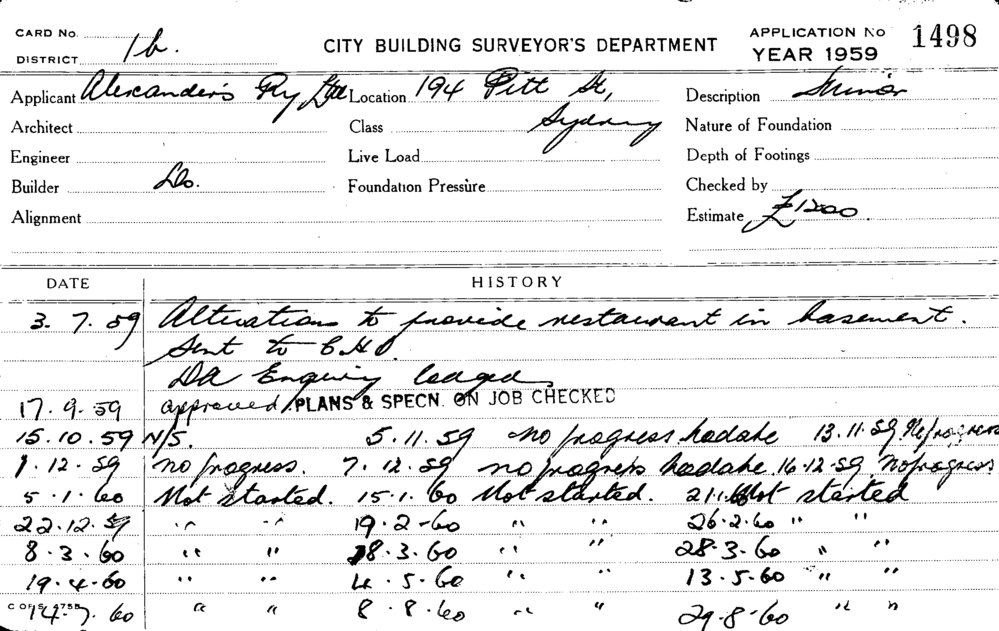 CARD No.
DISTRICT 1b.
CITY BUILDING SURVEYOR'S DEPARTMENT
APPLICATION No 1498
YEAR 1959
Applicant Alexander's Pty Ltd Location 194 Pitt St, Description Minor
Architect Class Sydney Nature of Foundation
Engineer Live Load Depth of Footings
Builder Do. Foundation Pressure Checked by
Alignment Estimate £1200.
DATE HISTORY
3. 7. 59 Alterations to provide restaurant in basement.
Sent to C.H.O.
DA Enquiry lodged
17. 9. 59 approved. PLANS & SPECN. ON JOB CHECKED
15. 10. 59 N/S. 5. 11. 59 no progress to date 13. 11. 59 No progress
1. 12. 59 no progress. 7. 12. 59 no progress to date 16. 12. 59 No progress
5. 1. 60 Not started. 15. 1. 60 Not started. 21. 1. 60 Not started
22. 12. 59 " " 19. 2 - 60 " " 26. 2. 60 " "
8. 3. 60 " " 18. 3. 60 " " 28. 3 - 60 " "
19. 4. 60 " " 4. 5. 60 " " 13. 5. 60 " "
C OF S 475B
14. 7. 60 " " 8. 8. 60 " " 29. 8 - 60 " "